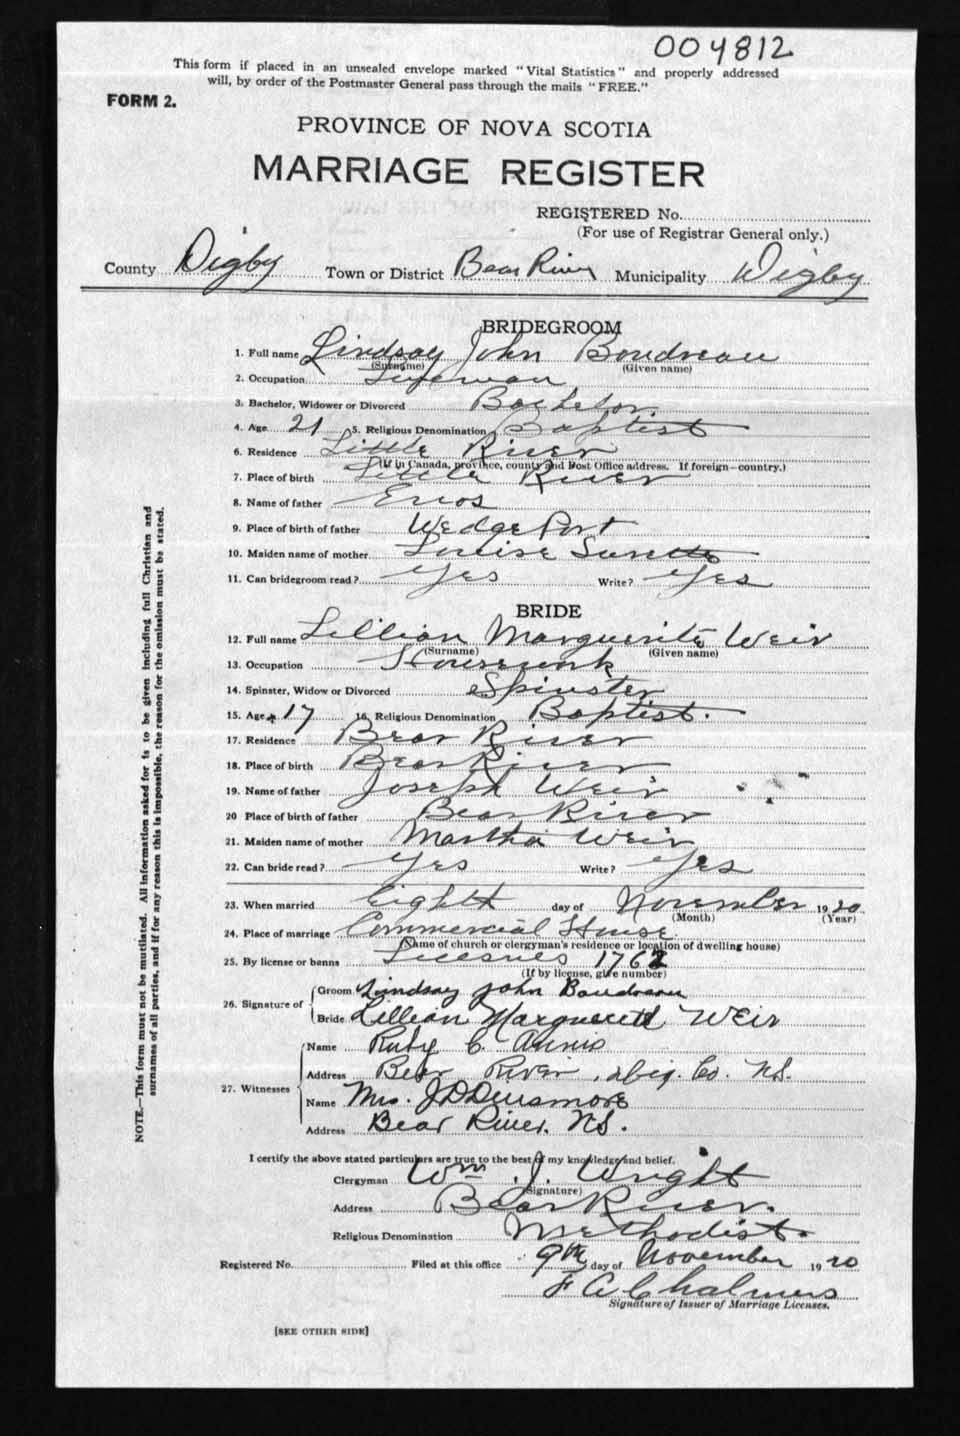 004812
This form if placed in an unsealed envelope marked "Vital Statistics" and properly addressed
will, by order of the Postmaster General pass through the mails "FREE."
FORM 2.
PROVINCE OF NOVA SCOTIA
MARRIAGE REGISTER
REGISTERED No.
(For use of Registrar General only.)
County Digby Town or District Bear River Municipality Digby
BRIDEGROOM
1. Full name Lindsay John Boudreau
(Surname) (Given name)
2. Occupation
3. Bachelor, Widower or Divorced Bachelor
4. Age 21 5. Religious Denomination Baptist
6. Residence Little River
(If in Canada, province, county and Post Office address. If foreign—country.)
7. Place of birth Little River
8. Name of father Enos
9. Place of birth of father Wedge Port
10. Maiden name of mother Louise
11. Can bridegroom read? Yes Write? Yes
BRIDE
12. Full name Lillian Marguerite Weir
(Surname) (Given name)
13. Occupation Housework
14. Spinster, Widow or Divorced Spinster
15. Age 17 16. Religious Denomination Baptist.
17. Residence Bear River
18. Place of birth Bear River
19. Name of father Joseph Weir
20 Place of birth of father Bear River
21. Maiden name of mother Martha Weir
22. Can bride read? Yes Write? Yes
23. When married Eighth day of November 1920
(Month) (Year)
24. Place of marriage Commercial House
(Name of church or clergyman's residence or location of dwelling house)
25. By license or banns Licesnes 1762
(If by license, give number)
26. Signature of
Groom Lindsay John Boudreau
Bride Lillian Marguerett Weir
27. Witnesses
Name Ruby C.
Address Bear River, Dig. Co. N.S.
Name Mrs. J D Dinsmore
Address Bear River, N.S.
I certify the above stated particulars are true to the best of my knowledge and belief.
Clergyman Wm. J. Wright
(Signature)
Address Bear River.
Religious Denomination Methodist.
Registered No. Filed at this office 9th day of November 1920
F A Chalmers
Signature of Issuer of Marriage Licenses.
[SEE OTHER SIDE]
NOTE.—This form must not be mutilated. All information asked for is to be given including full Christian and
surnames of all parties, and if for any reason this is impossible, the reason for the omission must be stated.